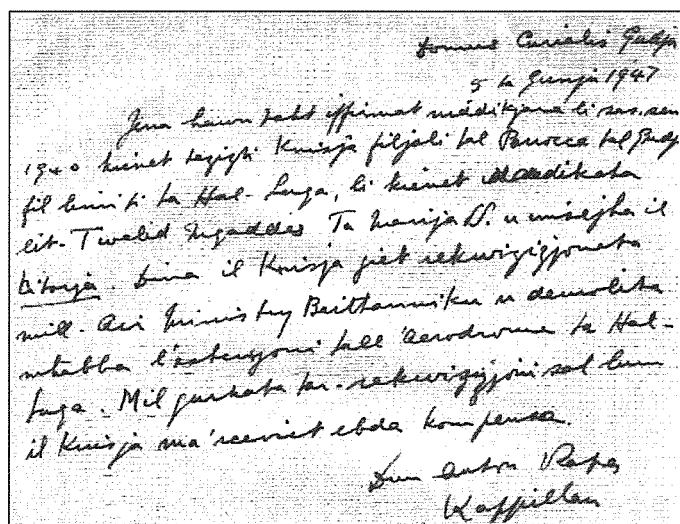 Domus Curialis Gudja
5 ta Gunju 1947
Jena hawn taht iffirmat niddikjara li sas-sena
1940 kienet tezisti Knisja filjali tal Parrocca tal Gudja
fil limiti ta Hal-Luqa, li kienet dedikata
lit-Twelid Imqaddes Ta Marija V. u msejha il
Vitorja. Dina il Knisja giet rekwizizzjonata
mill-Air Ministry Brittanniku u demolita
mhabba l'estensjoni tall 'Aerodrome ta Hal-
Luqa. Mil gurnata tar-rekwizizzjoni sal lum
il Knisja ma rceviet ebda kompensa.
Dun Anton
Kappillan